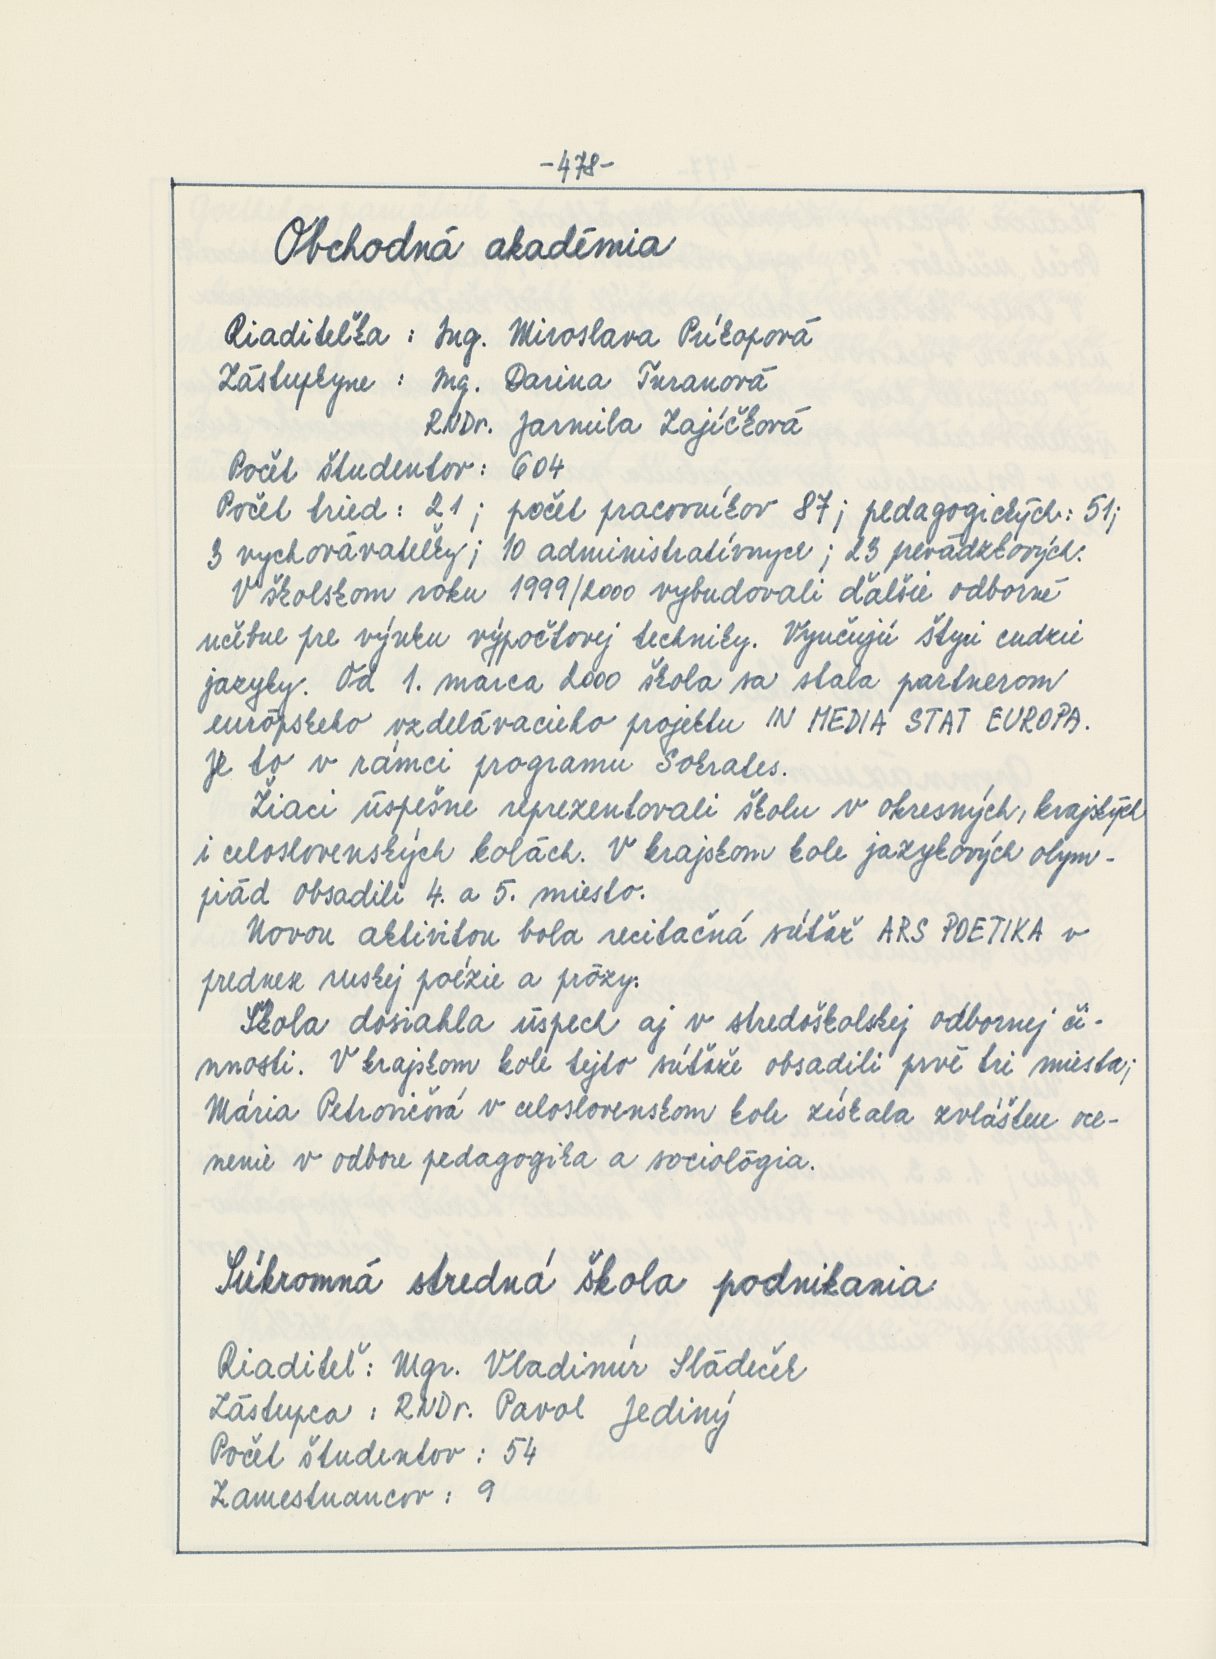 -478-
Obchodná akadémia
Riaditeľka : Ing. Miroslava Príkopová
Zástupkyne : Ing. Darina Turanová
RNDr. Jarmila Zajíčková
Počet študentov : 604
Počet tried : 21 ; počet pracovníkov 87 ; pedagogických : 51 ;
3 vychovávateľky ; 10 administratívnych ; 23 prevádzkových.
V školskom roku 1999/2000 vybudovali ďalšie odborné
učebne pre výuku výpočtovej techniky. Vyučujú štyri cudzie
jazyky. Od 1. marca 2000 škola sa stala partnerom
európskeho vzdelávacieho projektu IN MEDIA STAT EUROPA.
Je to v rámci programu Sokrates.
Žiaci úspešne reprezentovali školu v okresných, krajských
i celoslovenských kolách. V krajskom kole jazykových olym-
piád obsadili 4. a 5. miesto.
Novou aktivitou bola recitačná súťaž ARS POETIKA v
prednese ruskej poézie a prózy.
Škola dosiahla úspech aj v stredoškolskej odbornej či-
nnosti. V krajskom kole tejto súťaže obsadili prvé tri miesta ;
Mária Petrovičová v celoslovenskom kole získala zvláštne oce-
nenie v odbore pedagogika a sociológia.
Súkromná stredná škola podnikania
Riaditeľ : Mgr. Vladimír Sládeček
Zástupca : RNDr. Pavol Jediný
Počet študentov : 54
Zamestnancov : 9